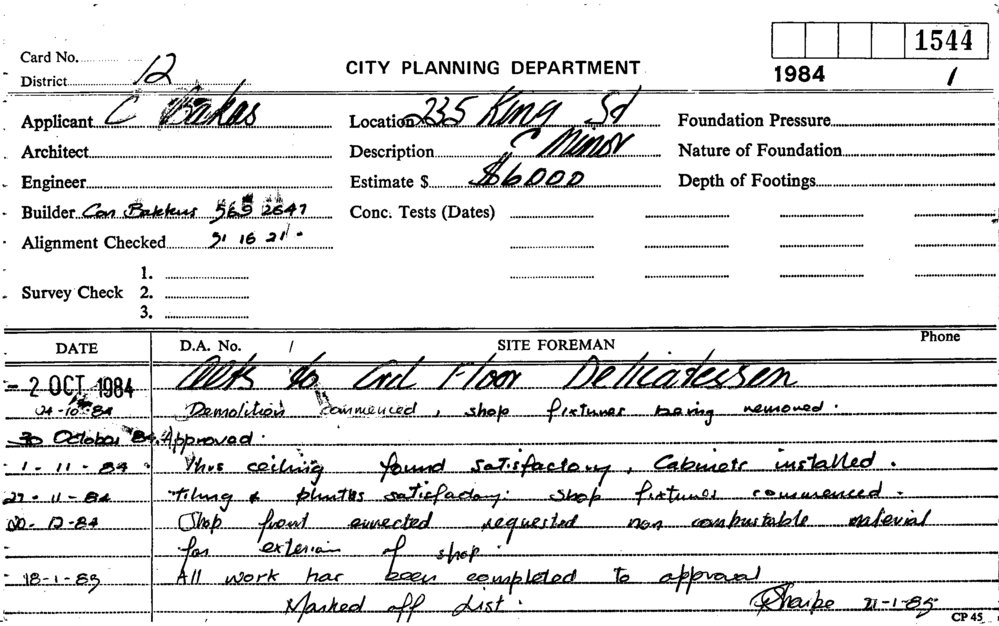 1544
Card No.
District 12
CITY PLANNING DEPARTMENT
1984 1
Applicant C Bakas
Location 235 King St
Foundation Pressure
Architect
Description C Minor
Nature of Foundation
Engineer
Estimate $ $6000
Depth of Footings
Builder Con Bakkus 569 2647
Conc. Tests (Dates)
Alignment Checked 51 16 21
Survey Check
1.
2.
3.
DATE D.A. No. / SITE FOREMAN Phone
- 2 OCT 1984 Alts to Grd Floor Delicatessen
24-10-84 Demolition commenced, shop fixtures being removed.
30 October 84. Approved.
1-11-84 ceiling found satisfactory, Cabinets installed.
22-11-84 Tiling & plinths satisfactory. Shop fixtures commenced.
20-12-84 Shop front errected requested non combustable material
for exterior of shop.
18-1-85 All work has been completed to approval
Marked off List. Sharpe 21-1-85
CP 45